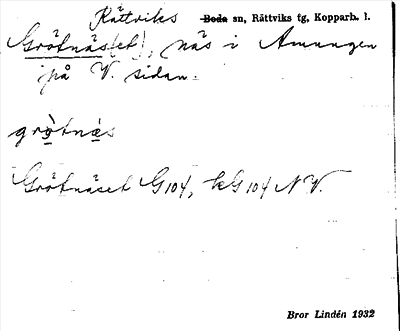 Rättviks ~~Boda~~ sn, Rättviks tg, Kopparb. l.
Grötnäs(et), näs i Amungen
på V. sidan.
gròtnæs
Grötnäset G104, kG104 NV.
Bror Lindén 1932